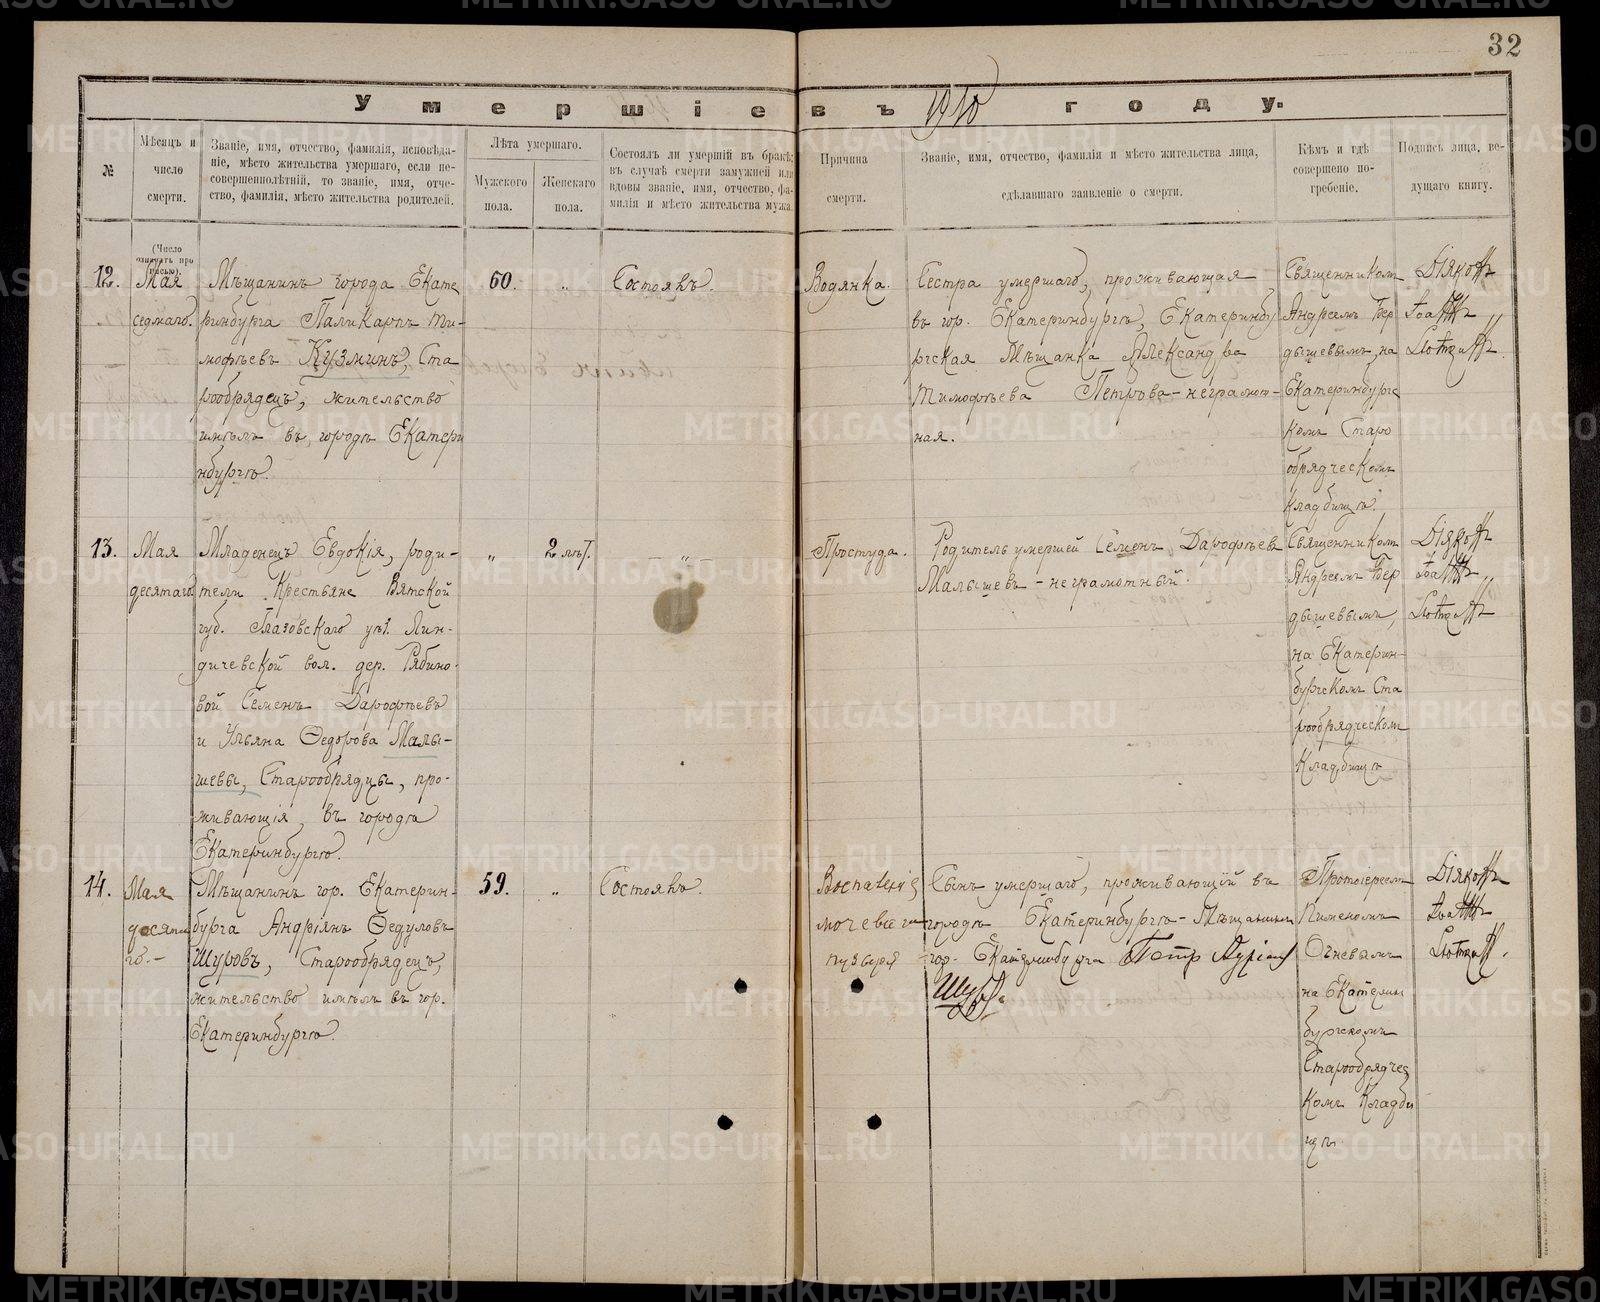 32
Умершіе въ 1910 году.
№
Мѣсяцъ и
число
смерти.
Званіе, имя, отчество, фамилія, исповѣда-
ніе, мѣсто жительства умершаго, если не-
совершеннолѣтній, то званіе, имя, отче-
ство, фамилія, мѣсто жительства родителей.
Лѣта умершаго.
Мужского
пола.
Женскаго
пола.
Состоялъ ли умершій въ бракѣ;
въ случаѣ смерти замужней или
вдовы званіе, имя, отчество, фа-
милія и мѣсто жительства мужа.
Причина
смерти.
Званіе, имя, отчество, фамилія и мѣсто жительства лица,
сдѣлавшаго заявленіе о смерти.
Кѣмъ и гдѣ
совершено по-
гребеніе.
Подпись лица, ве-
дущаго книгу.
(Число
означать про
писью).
12.
Мая
седмаго.
Мѣщанинъ города Екате
ринбурга Паликарпъ Ти-
мофѣевъ Кузминъ, Ста
рообрядецъ, жительство
имѣлъ въ городѣ Екатери
нбургѣ.
60.
"
Состоялъ.
Водянка.
Сестра умершаго, проживающая
въ гор. Екатеринбургѣ, Екатеринбу
ргская Мѣщанка Александра
Тимофѣева Петрова - неграмот-
ная.
Священникомъ
Андреемъ Бер
дышевымъ, на
Екатеринбургс
комъ Старо
обрядческомъ
кладбищѣ.
13.
Мая
десятаго
Младенецъ Евдокія, роди-
тели Крестьяне Вятской
губ. Глазовскаго уѣ.
вол. дер. Рябино-
вой Семенъ Дарофѣевъ
и Ульяна Ѳедорова Малы-
шевы, Старообрядцы, про-
живающія, въ городѣ
Екатеринбургѣ.
"
2 лѣт.
"
Простуда.
Родитель умершей Семенъ Дарофѣевъ
Малышевъ - неграмотный.
Священникомъ
Андреемъ Бер
дышевымъ,
на Екатерин-
бургскомъ Ста
рообрядческомъ
Кладбищѣ
14.
Мая
десята
го.-
Мѣщанинъ гор. Екатерин-
бурга Андріянъ Ѳедуловъ
Щуровъ, Старообрядецъ,
жительство имѣлъ въ гор.
Екатеринбургѣ.
59.
"
Состоялъ.
мочеваго
пузыря
Сынъ умершаго, проживающій въ
городѣ Екатеринбургѣ - Мѣщанинъ
гор. Екатеринбурга Петр
Протоіереемъ
Пименомъ
Огневымъ
на Екатерин
бургскомъ
Старообрядчес
комъ Кладби
щѣ.
METRIKI.GASO-URAL.RU